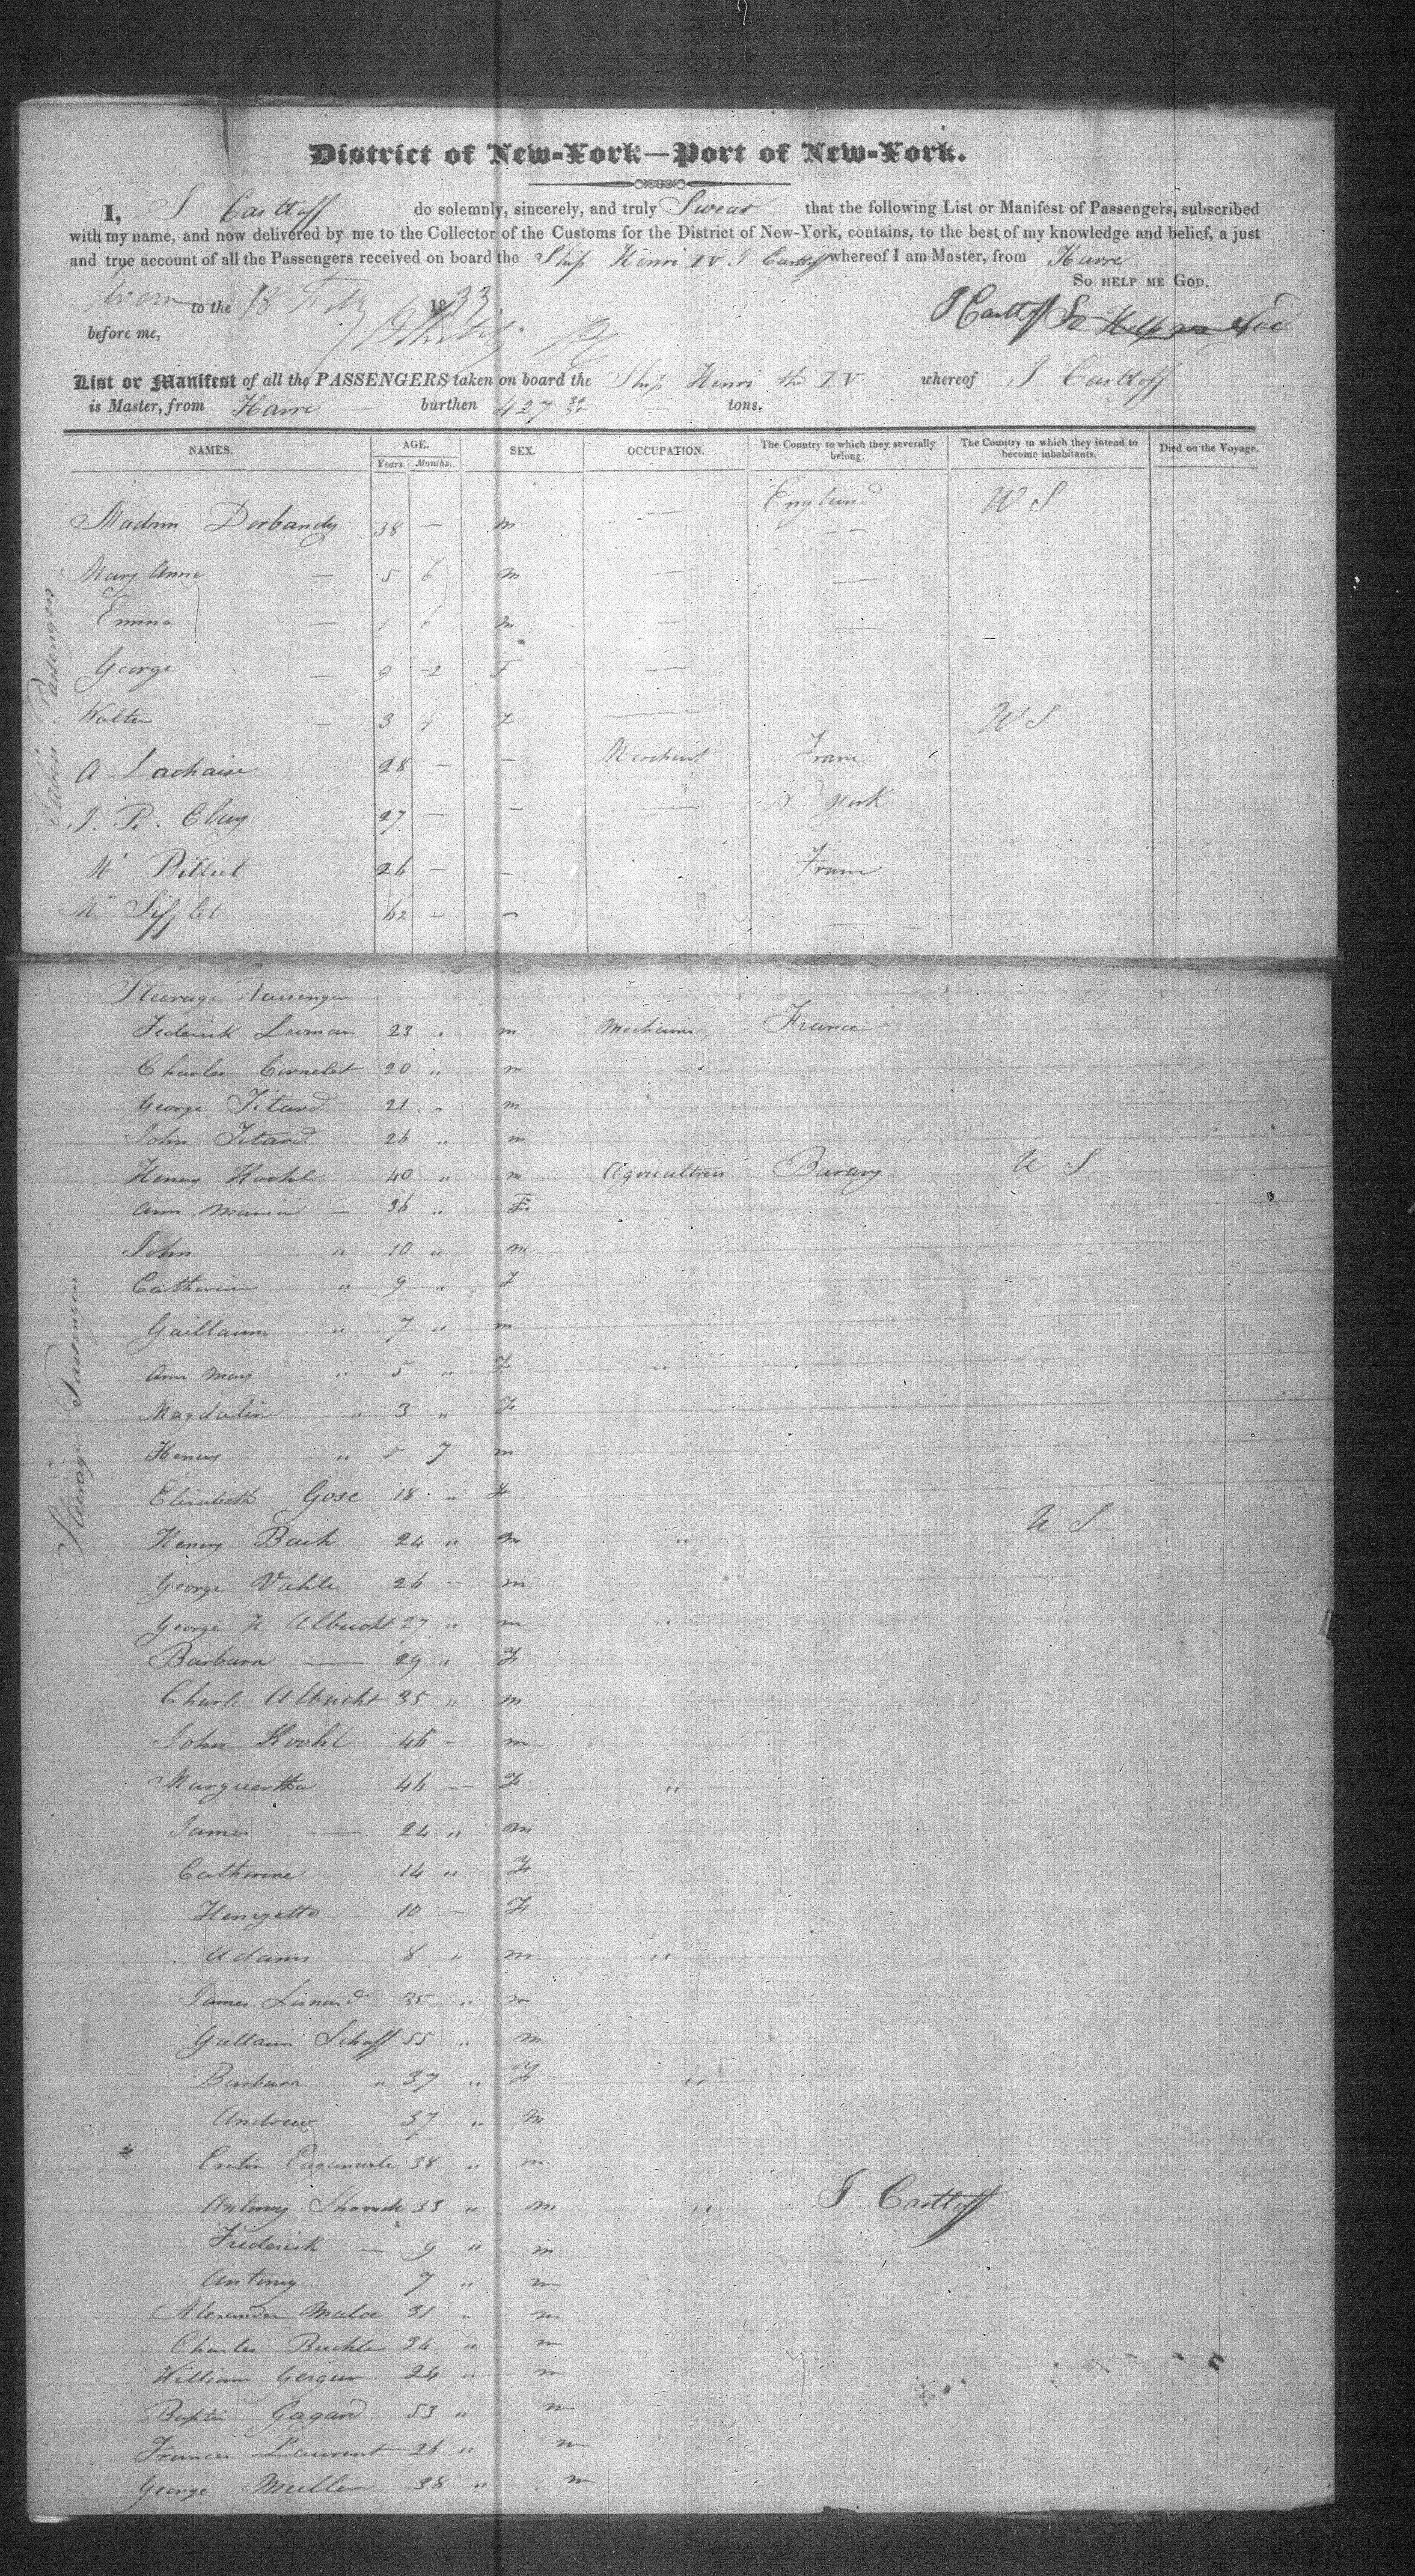 District of New-York—Port of New-York.
I, J Casttoff do solemnly, sincerely, and truly Swear that the following List or Manifest of Passengers, subscribed
with my name, and now delivered by me to the Collector of the Customs for the District of New-York, contains, to the best of my knowledge and belief, a just
and true account of all the Passengers received on board the Ship Henri IV J Casttoff whereof I am Master, from Havre
So help me God.
Sworn to the 18 Feby 1833
J Casttoff So Help me God
before me,
List or Manifest of all the PASSENGERS taken on board the Ship Henri the IV whereof J Casttoff
is Master, from Havre — burthen 427 tons.
NAMES. AGE. Years. Months. SEX. OCCUPATION. The Country to which they severally belong. The Country in which they intend to become inhabitants. Died on the Voyage.
Cabin Passengers
Madam Dorbandy 38 — m — England U S
Mary Anne — 5 6 m — —
Emma — 1 6 m — —
George — 9 2 F —
Walter — 3 F — U S
A Lachaise 28 — — Merchant France
J. R. Clay 27 — — — N York
Mr Billiet 26 — — France
Mr Sifflet 62 — — —
Steerage Passengers
Steerage Passenger
Federick Luman 23 " m Mechanic France
Charles Cornelet 20 " m
George Titard 21 " m
John Titard 26 " m
Henry Koohl 40 " m Agriculteur Bavary U S
Ann Maria — 36 " F
John " 10 " m
Catherine " 9 " F
Guillaume " 7 " m
Ann Mary " 5 " F "
Magdaline " 3 " F
Henery " 7 m
Elizabeth Gose 18 " F
Henery Bach 24 " m " U S
George Vahle 26 -- m
George H Albrecht 27 " m "
Barbara — 29 " F
Charle Albricht 35 " m
John Koohl 46 - m
Marguertha 46 — F "
James — 24 " m
Catherine 14 " F
Henryetta 10 — F
Adams 8 " m "
James Lienard 35 " m
Gullaum Schaff 55 " m
Barbara " 37 " F "
Andrew 37 " m
38 " m
Antony 33 " m " J. Casttoff
Frederick — 9 " m
Antony 7 " m
Alexander Maloe 31 " m
Charles Buchle 36 " m
William Gergun 24 " m
Baptis Gagard 53 " m
Frances Laurent 26 " m
George Muller 38 " m